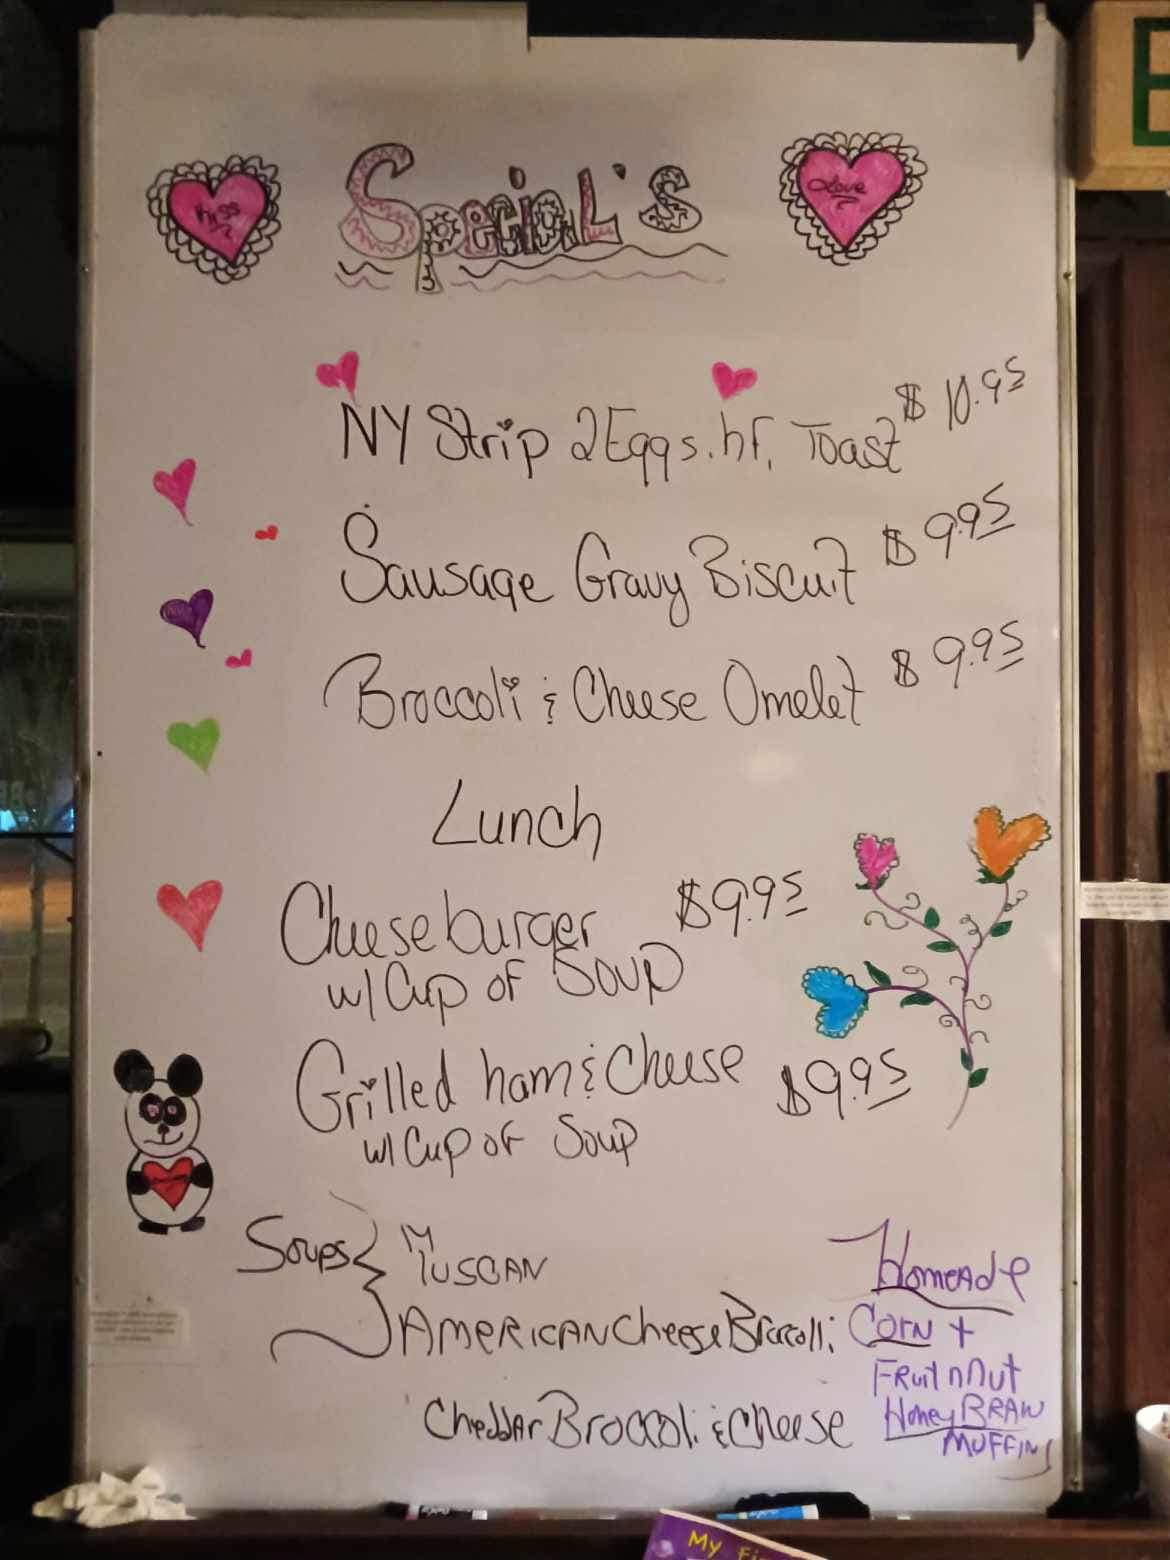 Kiss
Special's
Love
NY Strip 2 Eggs. hf. Toast $10.95
Sausage Gravy Biscuit $9.95
Broccoli & Cheese Omelet $9.95
Lunch
Cheeseburger $9.95
w/ Cup of Soup
Grilled ham & Cheese $9.95
w/ Cup of Soup
Soups
Tuscan
American Cheese Broccoli
Cheddar Broccoli & Cheese
Homeade
Corn +
Fruit n Nut
Honey Bran
Muffins
My